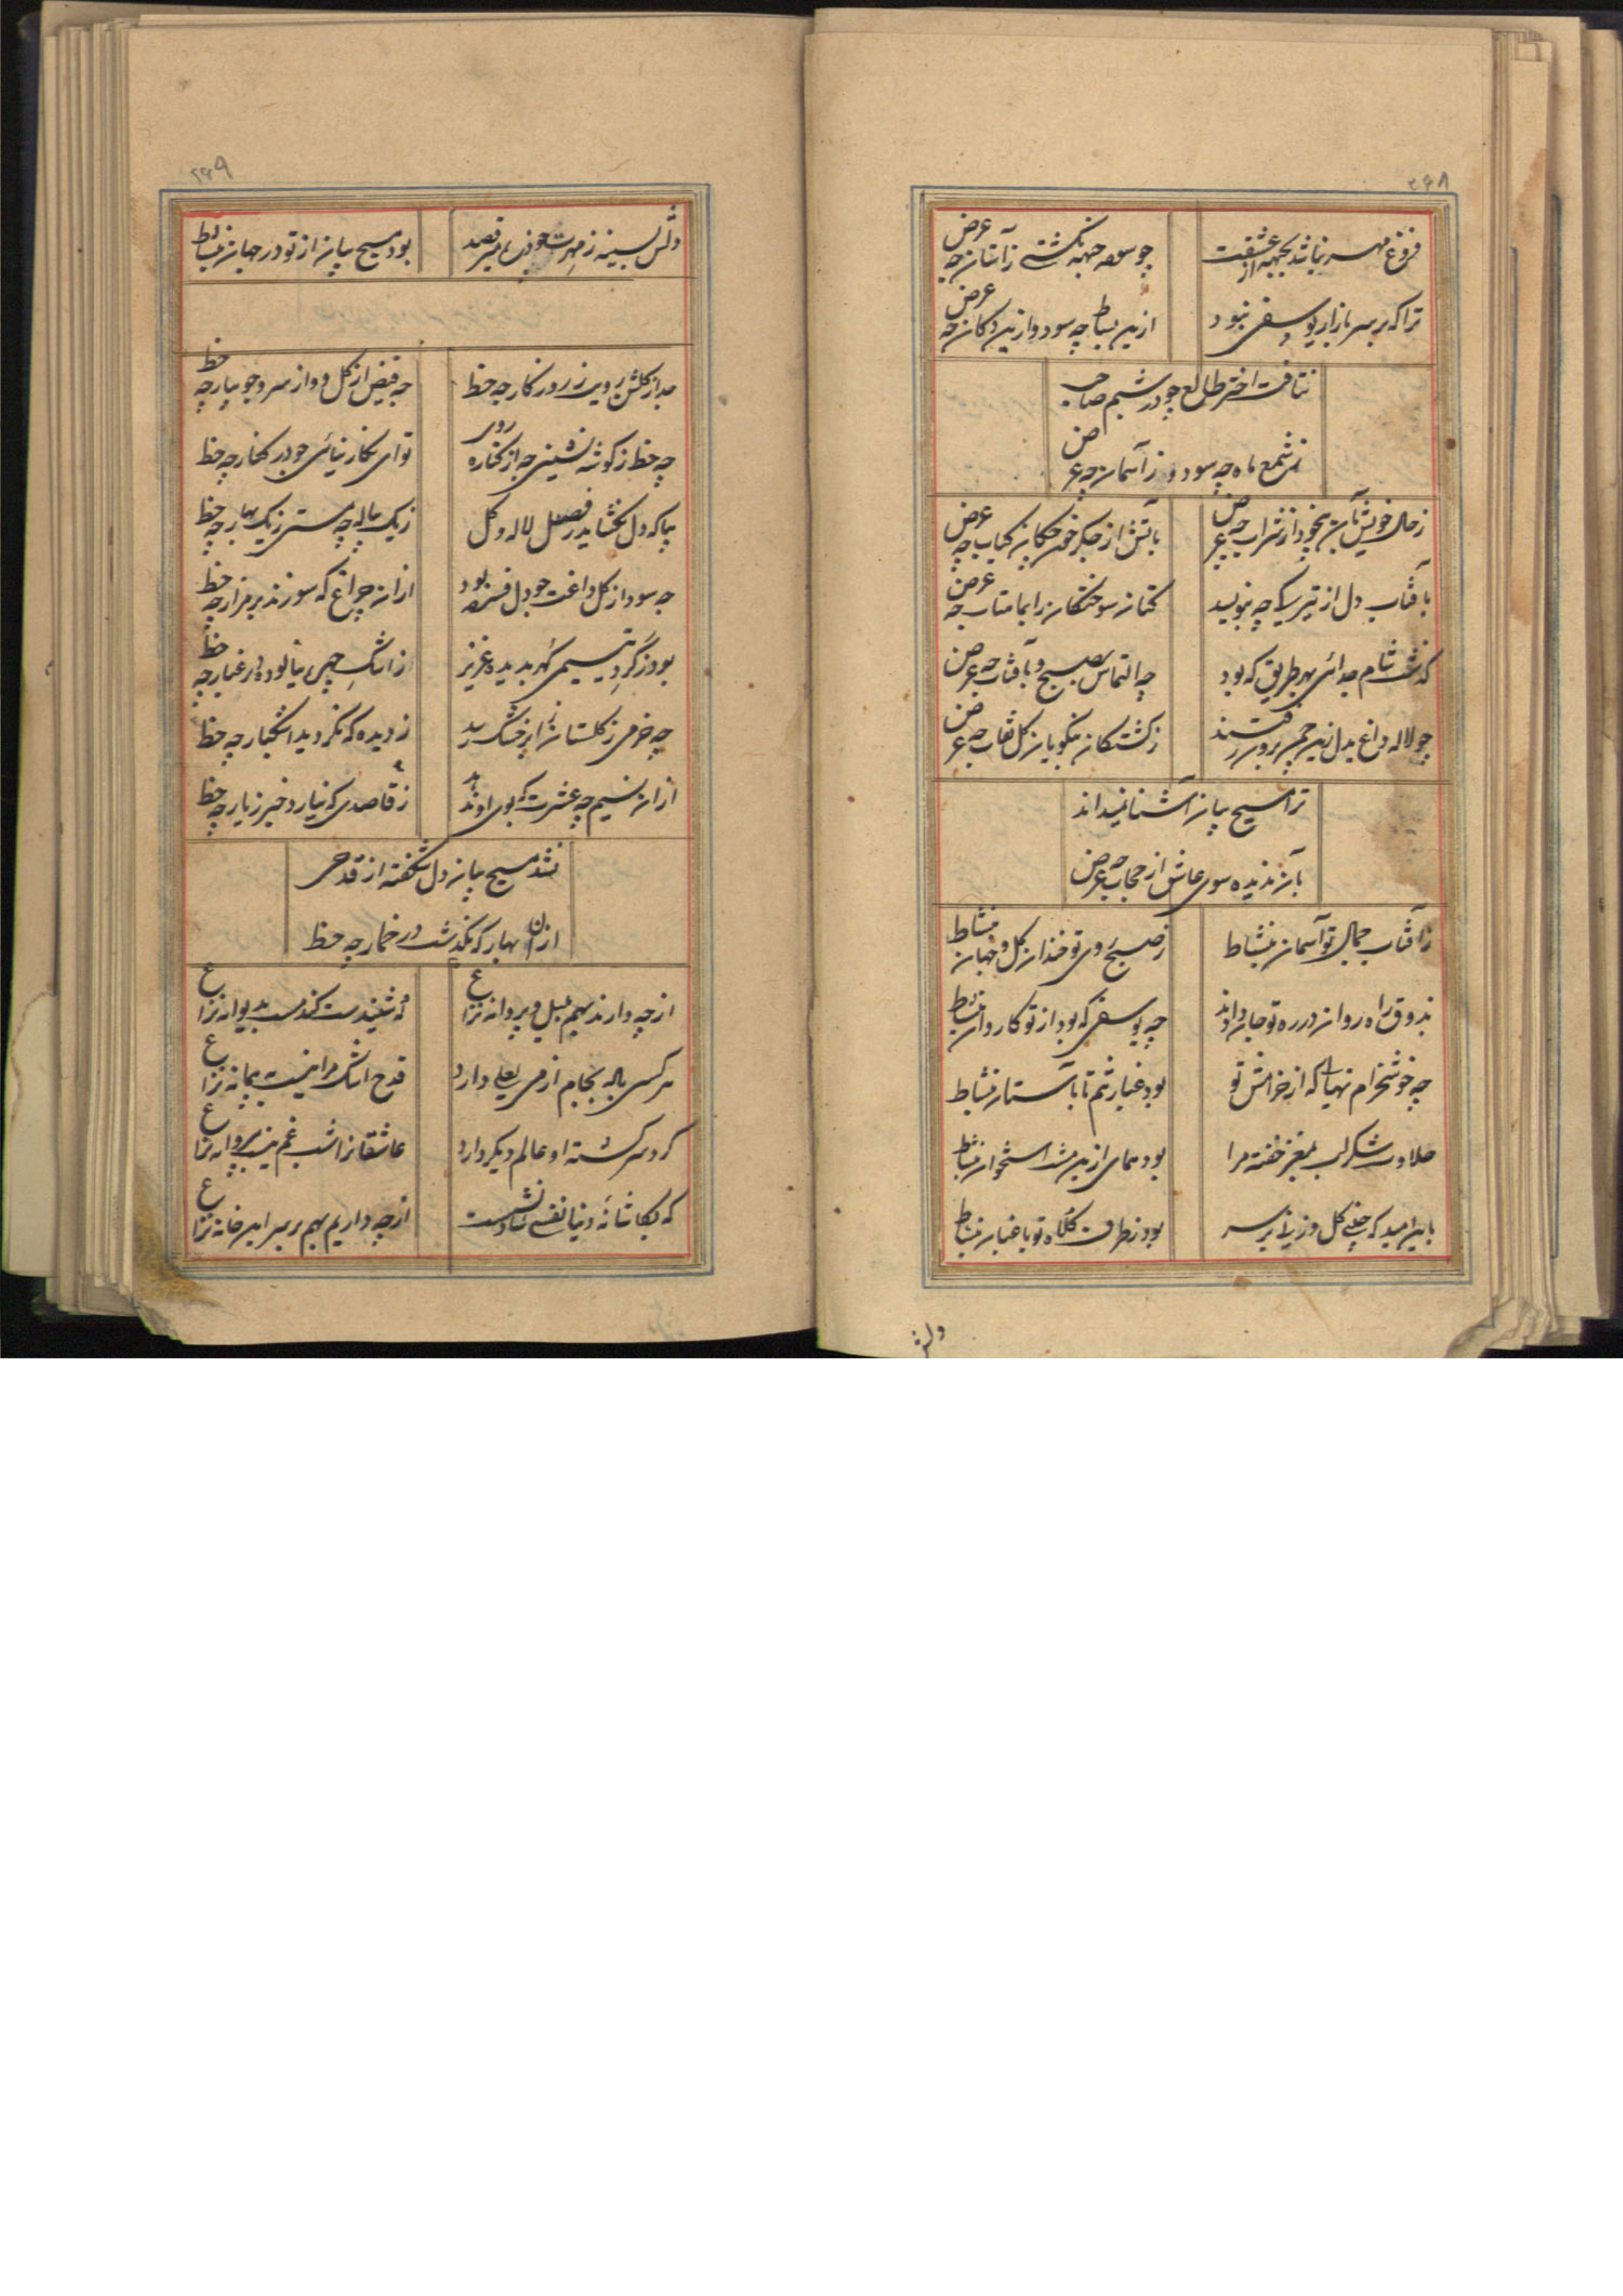 ۲۶۸
فروغ مهر نباشد بجبهه از عشقت
چو سوده جبهه نگشتی ز آستان چه عرض
ترا که بر سر بازار یوسفی نبود
ازین بساط چه سود و ازین دکان چه عرض
نتافت اختر طالع چو در شبم صاحب
ز شمع ماه چه سود و ز آسمان چه عرض
ز حال خویش بآن بیخود از شراب چه عرض
بآتش از جگر خون چکان کباب چه عرض
بآفتاب دل از تیرگی چه بنویسد
کتان سوختگان را بماهتاب چه عرض
گذشت شام جدائی بهر طریق که بود
چه التماس بصبح و بآفتاب چه عرض
چو لاله داغ بدل زین چمن برون رفتند
ز کشتگان نکویان گل نقاب چه عرض
ترا مسیح بیان آشنا نمیداند
بآن ندیده سوی عاشق از حجاب چه عرض
ز آفتاب جمال تو آسمان بنشاط
ز صبح روی تو خندان گل و جهان بنشاط
بذوق راه روان در ره تو جان دادند
چه یوسفی که بود از تو کاروان بنشاط
چه خوشخرام نهالی که از خرامش تو
بود غبار تنم تا بآستان بنشاط
حلاوت شکر لب بمغز خفته مرا
بود همای ازین مشت استخوان بنشاط
باین امید که چینی گل و زنی بر سر
بود ز طرف کلاه تو باغبان بنشاط
دلش
۲۶۹
دلش بسینه ز مهرت چو ذره میرقصد
بود مسیح بیان از تو در جهان بنشاط
جدا ز گلشن رویت ز روزگار چه حظ
چه فیض از گل و از سرو جویبار چه حظ
چه حظ ز گوشه نشینی چه از کناره روی
تو ای نگار نیائی چو در کنار چه حظ
بیا که دل نگشاید ز فصل لاله و گل
ز یک پیاله چه مستی ز یک بهار چه حظ
چه سود از گل داغت چو دل فسرده بود
ازان چراغ که سوزند بر مزار چه حظ
بود ز گرد یتیمی گهر بدیده عزیز
ز اشک چهره نیالوده در غبار چه حظ
چه خرمی ز گلستان ز ابر خشک رسد
ز دیده که نگردید اشکبار چه حظ
ازان نسیم چه عشرت که بوی او ندهد
ز قاصدی که نیارد خبر ز یار چه حظ
نشد مسیح بیان دل شکفته از قدحی
ازان بهار که بگذشت در خمار چه حظ
از چه دارند بهم بلبل و پروانه نزاع
نه شنیدست کند مست بدیوانه نزاع
هر کسی باله بجام از می لعلی دارد
قدح اشک مرا نیست به پیمانه نزاع
گرد سر گشته او عالم دیگر دارد
عاشقانرا شب غم نیست بپروانه نزاع
که بکاشانه دنیا نفسی شاد نشست
از چه داریم بهم بر سر این خانه نزاع